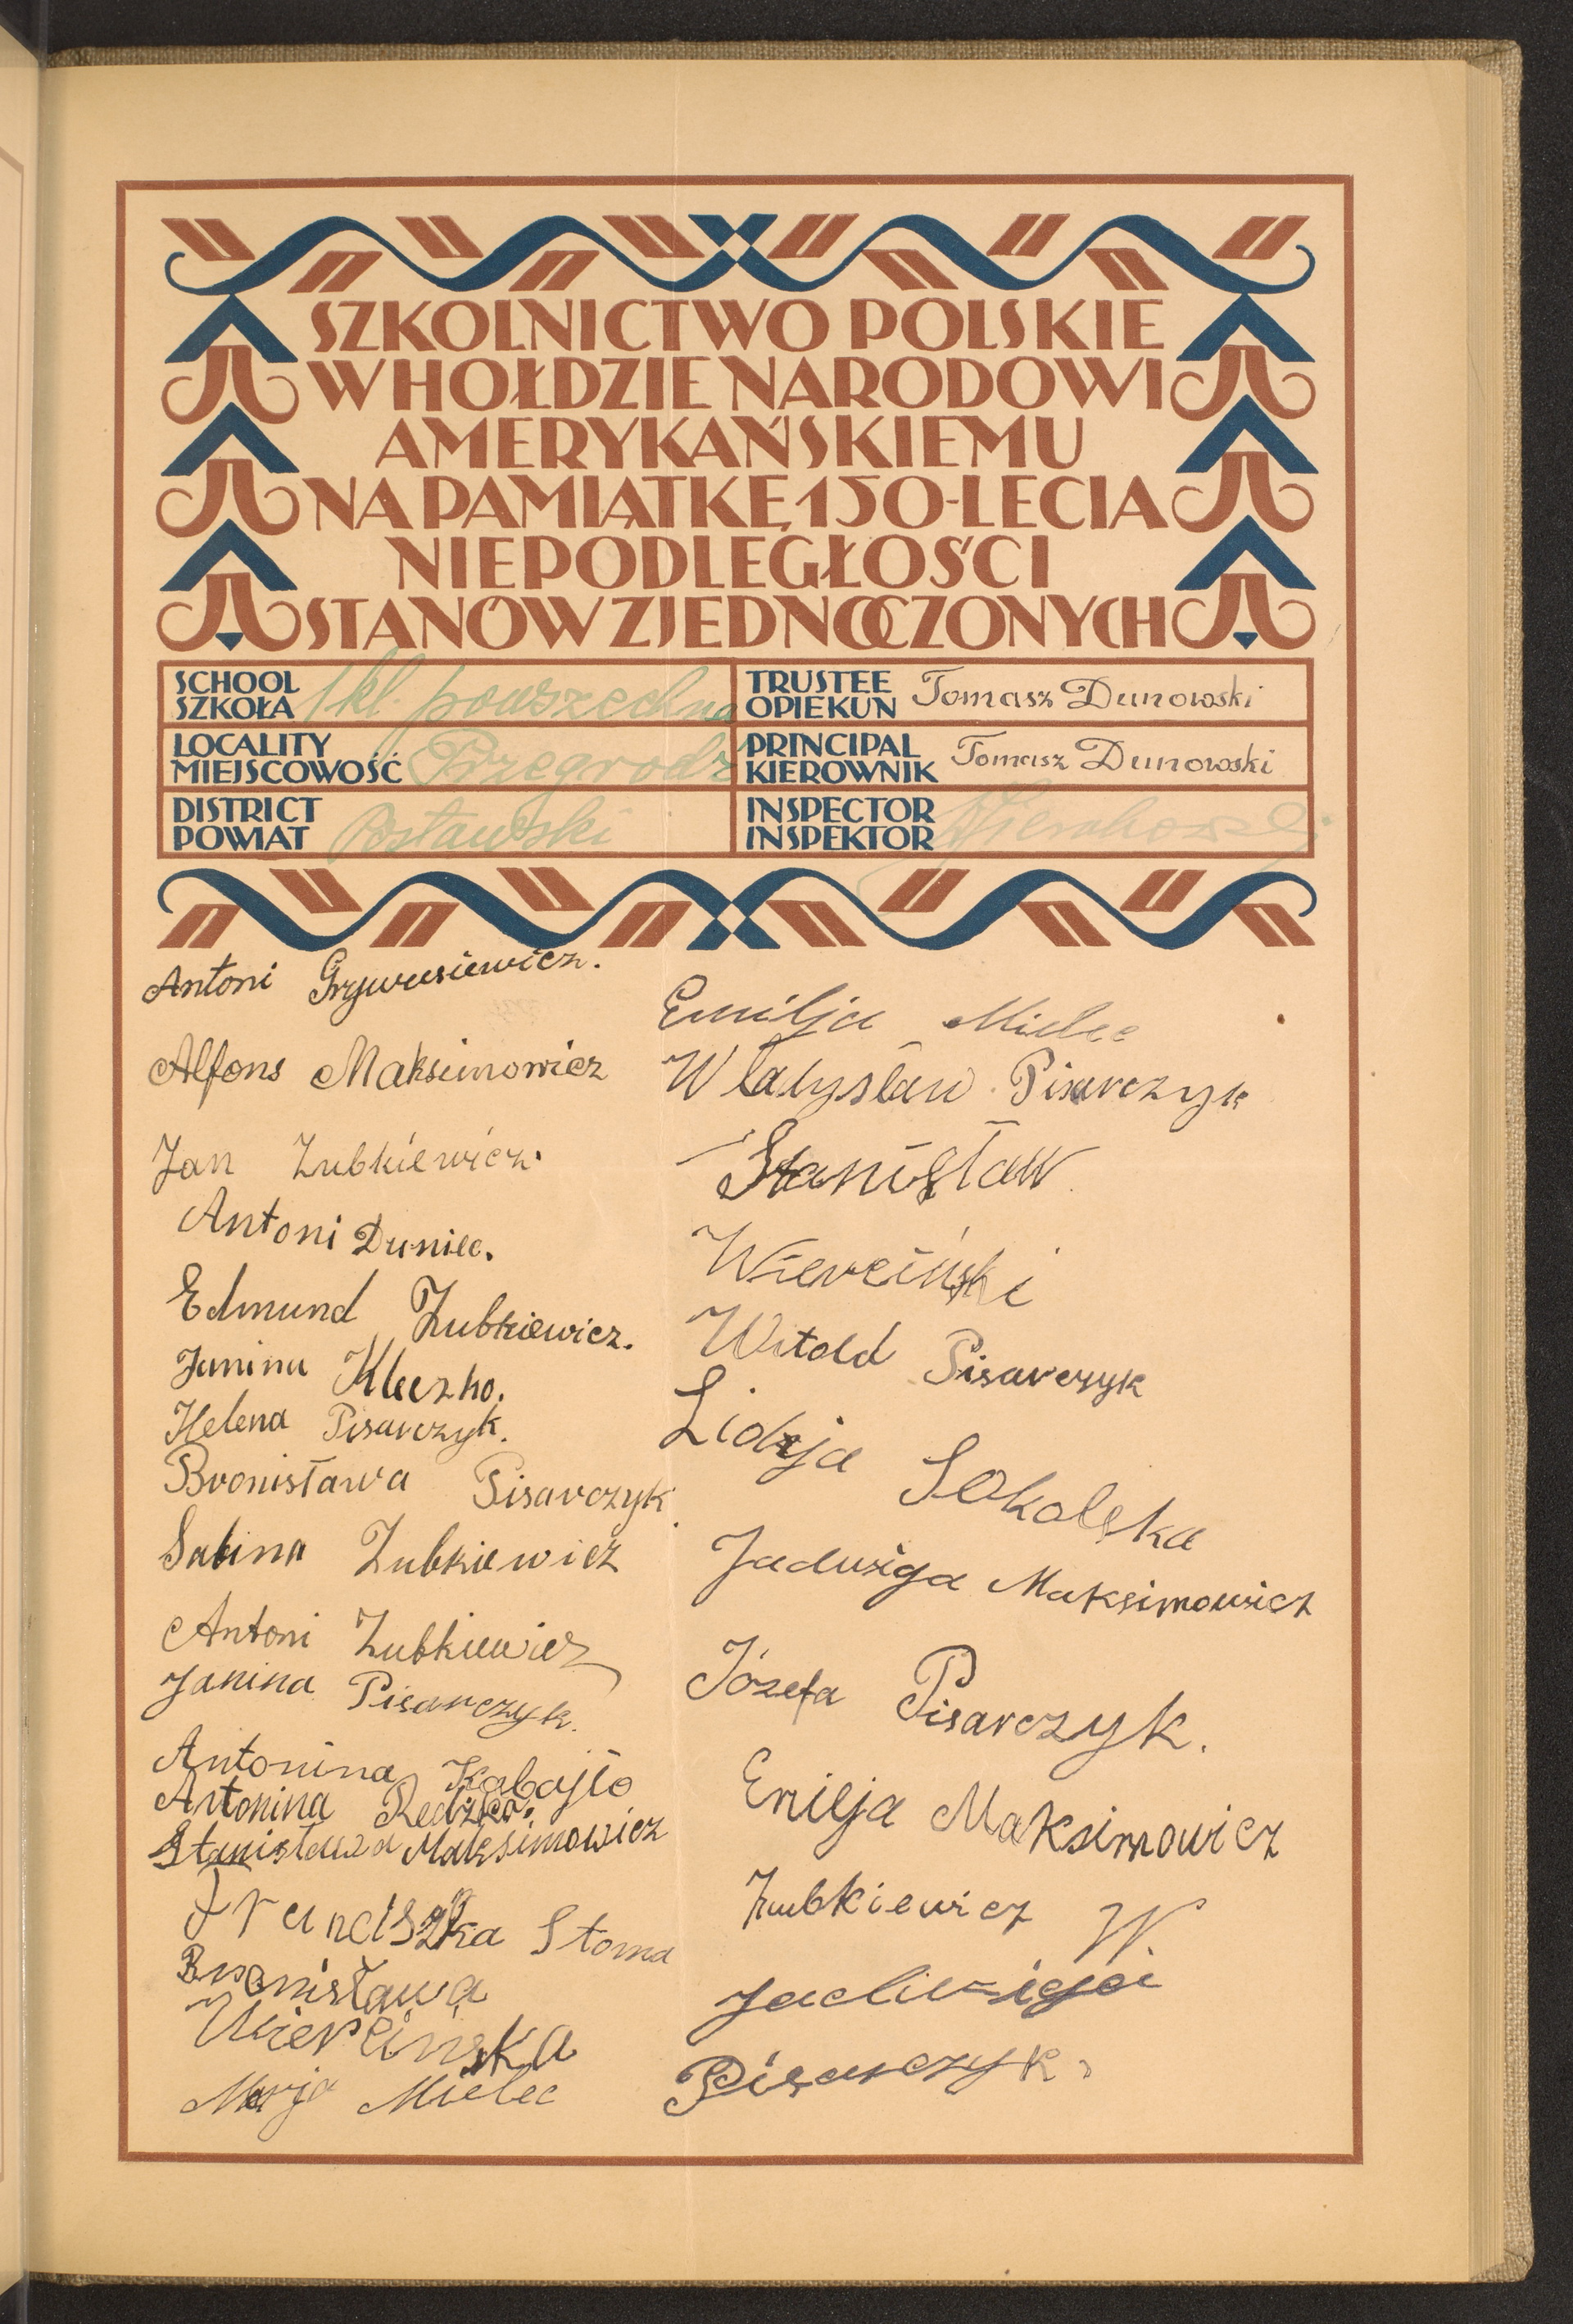 SZKOLNICTWO POLSKIE
W HOŁDZIE NARODOWI
AMERYKAŃSKIEMU
NA PAMIĄTKĘ 150-LECIA
NIEPODLEGŁOŚCI
STANÓW ZJEDNOCZONYCH
SCHOOL
SZKOŁA
1 kl. powszechna
TRUSTEE
OPIEKUN
Tomasz Dunowski
LOCALITY
MIEJSCOWOŚĆ
Przegrodź
PRINCIPAL
KIEROWNIK
Tomasz Dunowski
DISTRICT
POWIAT
Postawski
INSPECTOR
INSPEKTOR
Antoni
Alfons Maksimowicz
Jan Zubkiewicz.
Antoni Duniec.
Edmund Zubkiewicz.
Janina
Helena Pisarczyk.
Bronisława Pisarczyk.
Sabina Zubkiewicz
Antoni Zubkiewicz
Janina Pisarczyk.
Antonina Kabajło
Antonina Redźko.
Stanisława Maksimowicz
Franciszka Stoma
Bronisława
Wiercińska
Marja Mielec
Emilja Mielec
Władysław Pisarczyk
Stanisław
Wierciński
Witold Pisarczyk
Lidzja Sokolska
Jadwiga Maksimowicz
Józefa Pisarczyk.
Emilja Maksimowicz
Zubkiewicz W.
Jadwiga
Pisarczyk.